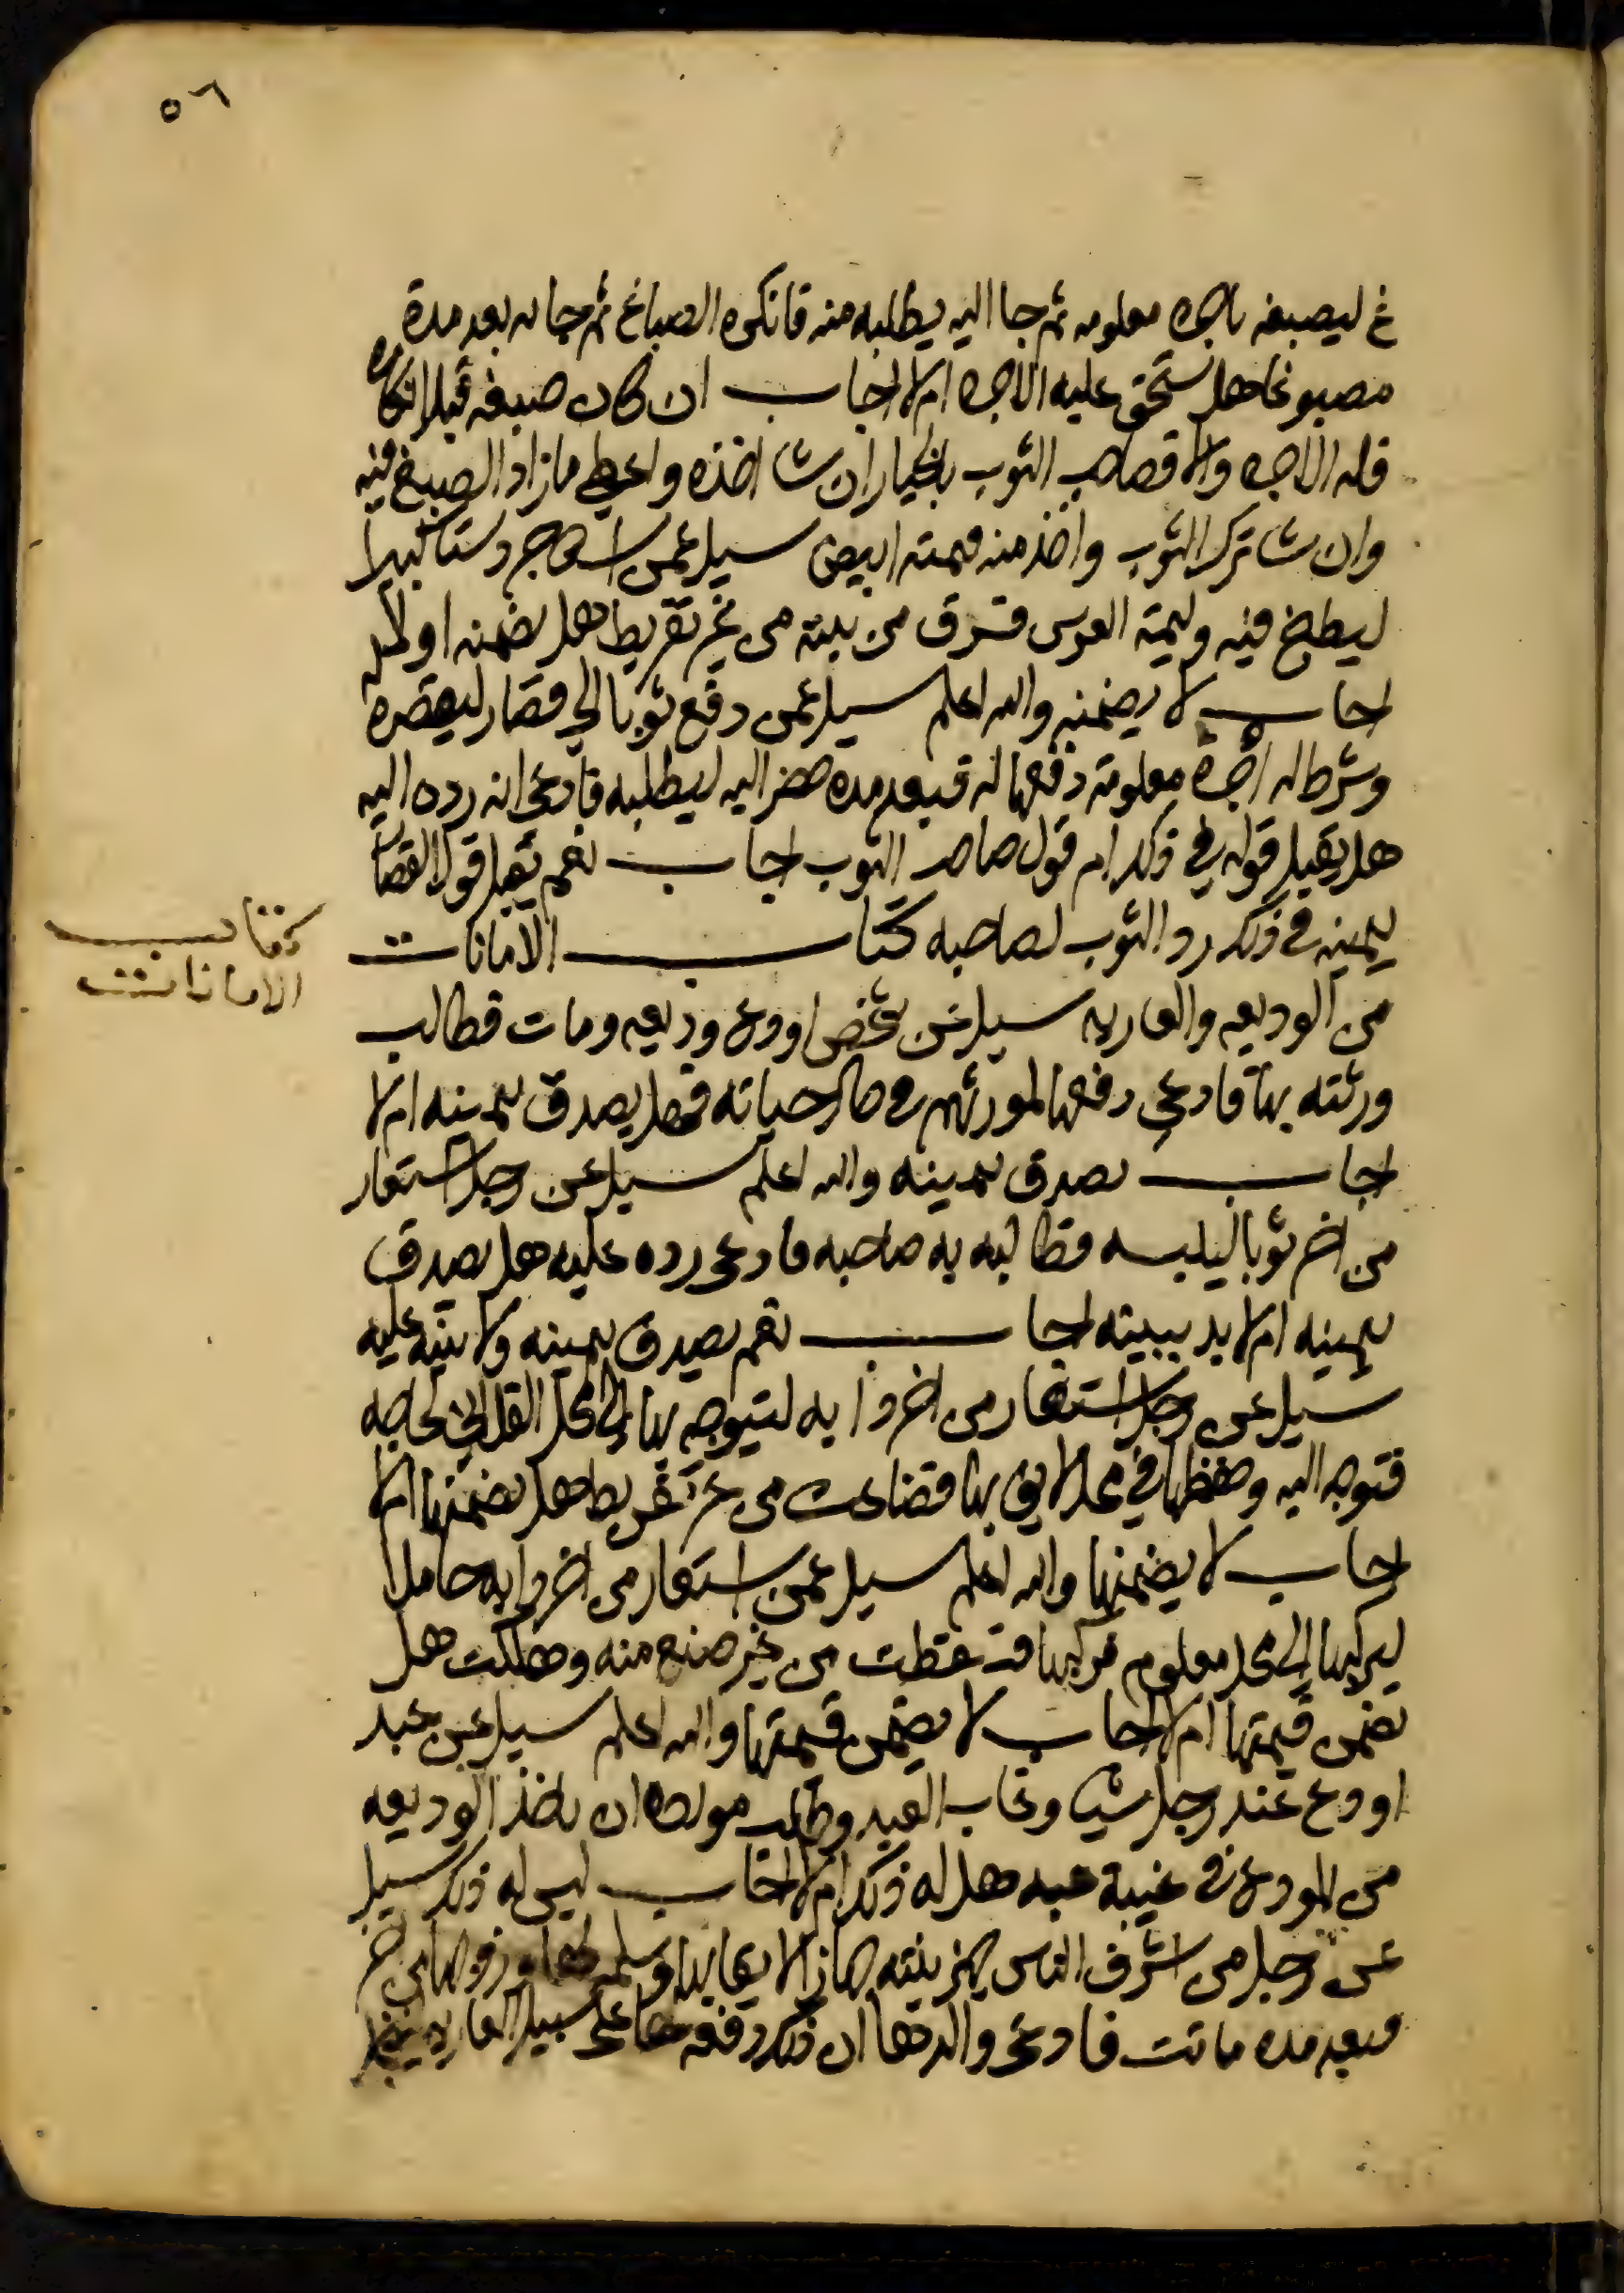 ٥٦
غ ليصبغه باجره معلومه ثم جا اليه يطلبه منه فانكره الصباغ ثم جا به بعد مدة
مصبوغا هل يستحق عليه الاجره ام لا اجاب ان كان صبغه قبل انكاره
فله الاجره والا فصاحب الثوب بالخيار ان شا اخذه واعطي ما زاد الصبغ فيه
وان شا ترك الثوب واخذ منه قيمته ابيض سيل عمن استاجر دستا كبيرا
ليطبخ فيه وليمة العرس فسرق من بيته من غير تفريط هل يضمنه او لا
اجاب لا يضمنه والله اعلم سيل عمن دفع ثوبا الي قصار ليقصره
وشرط له اجرة معلومة دفعها له فبعد مده حضر اليه ليطلبه فادعي انه رده اليه
هل يقبل قوله في ذلك ام قول صاحب الثوب اجاب نعم يقبل قول القصار
بيمينه في ذلك رد الثوب لصاحبه كتاب الامانات
كتاب
الامانات
من الوديعه والعاريه سيل عن شخص اودع وديعه ومات فطالب
ورثته بها فادعي دفعها لمورثهم في حال حياته فهل يصدق بيمينه ام لا
اجاب يصدق بيمينه والله اعلم سيل عن رجل استعار
من اخر ثوبا ليلبسه فطالبه به صاحبه فادعي رده عليه هل يصدق
بيمينه ام لا بد ببينه اجاب نعم يصدق بيمينه ولا بينه عليه
سيل عن رجل استعار من اخر دابه ليتوجه بها الي محل الفلاني لحاجه
فتوجه اليه وحفظها في محل لايق بها فضاعت من غير تفريط هل يضمنها ام لا
اجاب لا يضمنها والله اعلم سيل عمن استعار من اخر دابه حاملا
ليركبها الي محل معلوم فركبها فسقطت من غير صنع منه وهلكت هل
يضمن قيمتها ام لا اجاب لا يضمن قيمتها والله اعلم سيل عن عبد
اودع عند رجل شيا وغاب العبد وطلب مولاه ان ياخذ الوديعه
من المودع في غيبة عبده هل له ذلك ام لا اجاب ليس له ذلك سيل
عن رجل من اشرف الناس جهز بنته جهازا لايقا بها وسلمه لها وزوجها من اخر
فبعد مده ماتت فادعي والدها ان ذلك دفعه لها علي سبيل العاريه